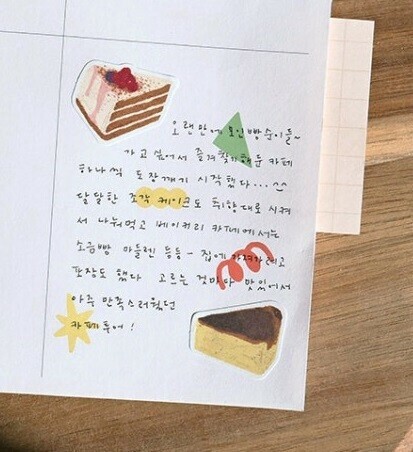 오랜만에 모인 빵순이들~
가고 싶어서 즐겨찾기해둔 카페
하나씩 도장깨기 시작했다...^^
달달한 조각 케이크도 취향대로 시켜
서 나눠먹고 베이커리 카페에서는
소금빵 마들렌 등등~ 집에 가져가려고
포장도 했다 고르는 것마다 맛있어서
아주 만족스러웠던
카페투어!